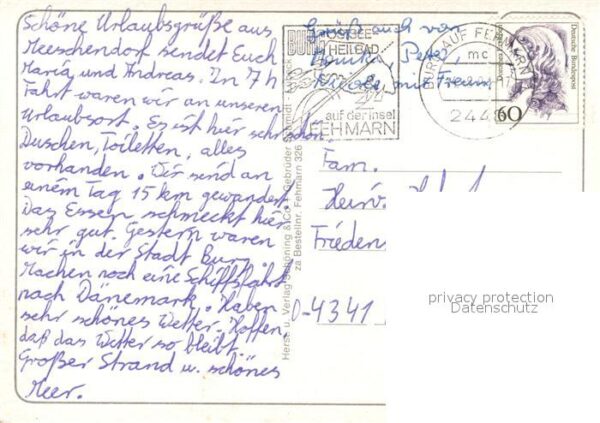 Schöne Urlaubsgrüße aus
Meeschendorf sendet Euch
Maria und Andreas. In 7 h
Fahrt waren wir an unseren
Urlaubsort. Es ist hier sehr schön.
Duschen, Toiletten, alles
vorhanden. Wir sind an
einem Tag 15 km gewandert.
Das Essen schmeckt hier
sehr gut. Gestern waren
wir in der Stadt Burg.
Machen noch eine Schiffsfahrt
nach Dänemark. Haben
sehr schönes Wetter. Hoffen,
daß das Wetter so bleibt.
Großer Strand u. schönes
Meer.
Grüße auch von
Peter,
BURG
OSTSEE
HEILBAD
auf der Insel
FEHMARN
BURG AUF FEHMARN
mc
244
Deutsche Bundespost
60
Fam.
Frieden
O-4341
Herst. u. Verlag Schöning & Co + Gebrüder Schmidt, Lübeck
za Bestellnr. Fehmarn 326
privacy protection
Datenschutz